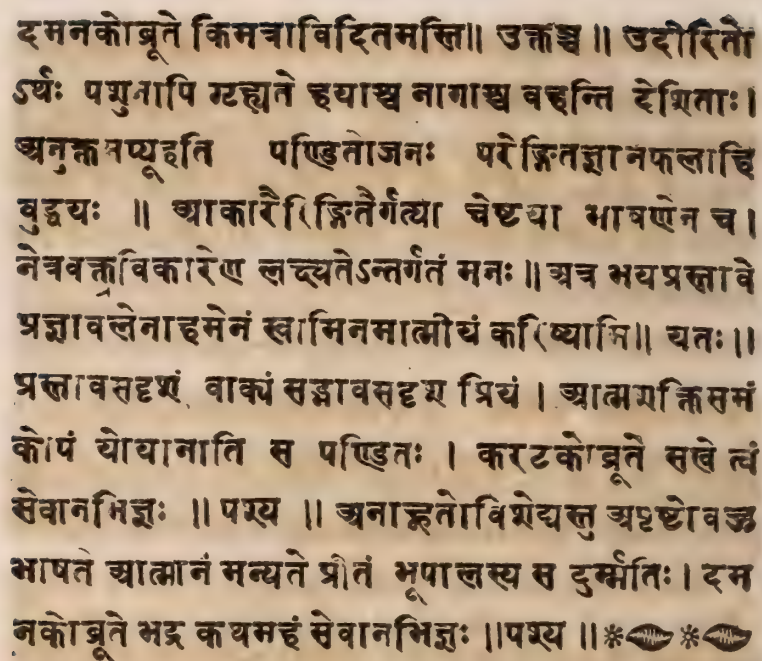 दमनकोब्रूते किमत्राविदितमस्ति॥ उक्तञ्च ॥ उदीरितो
ऽर्थः पशुनापि गृह्यते हयाश्च नागाश्च वहन्ति देशिताः।
अनुक्तमप्यूहति पण्डितोजनः परेङ्गितज्ञानफलाहि
वुद्धयः ॥ आकारैरिङ्गितैर्गत्या चेष्टया भाषणेन च।
नेत्रवक्त्रविकारेण लक्ष्यतेऽन्तर्गतं मनः॥ अत्र भयप्रस्तावे
प्रज्ञावलेनाहमेनं स्वामिनमात्मीयं करिष्यामि॥ यतः॥
प्रस्तावसदृशं वाक्यं सद्भावसदृश प्रियं । आत्मशक्तिसमं
कोपं योयानाति स पण्डितः । करटकोब्रूते सखे त्वं
सेवानभिज्ञः ॥ पश्य ॥ अनाहूतोविशेद्यस्तु अपृष्टोवज्ज
भाषते आत्मानं मन्यते प्रीतं भूपालस्य स दुर्म्मतिः। दम
नकोब्रूते भद्र कथमहं सेवानभिज्ञः ॥पश्य ॥